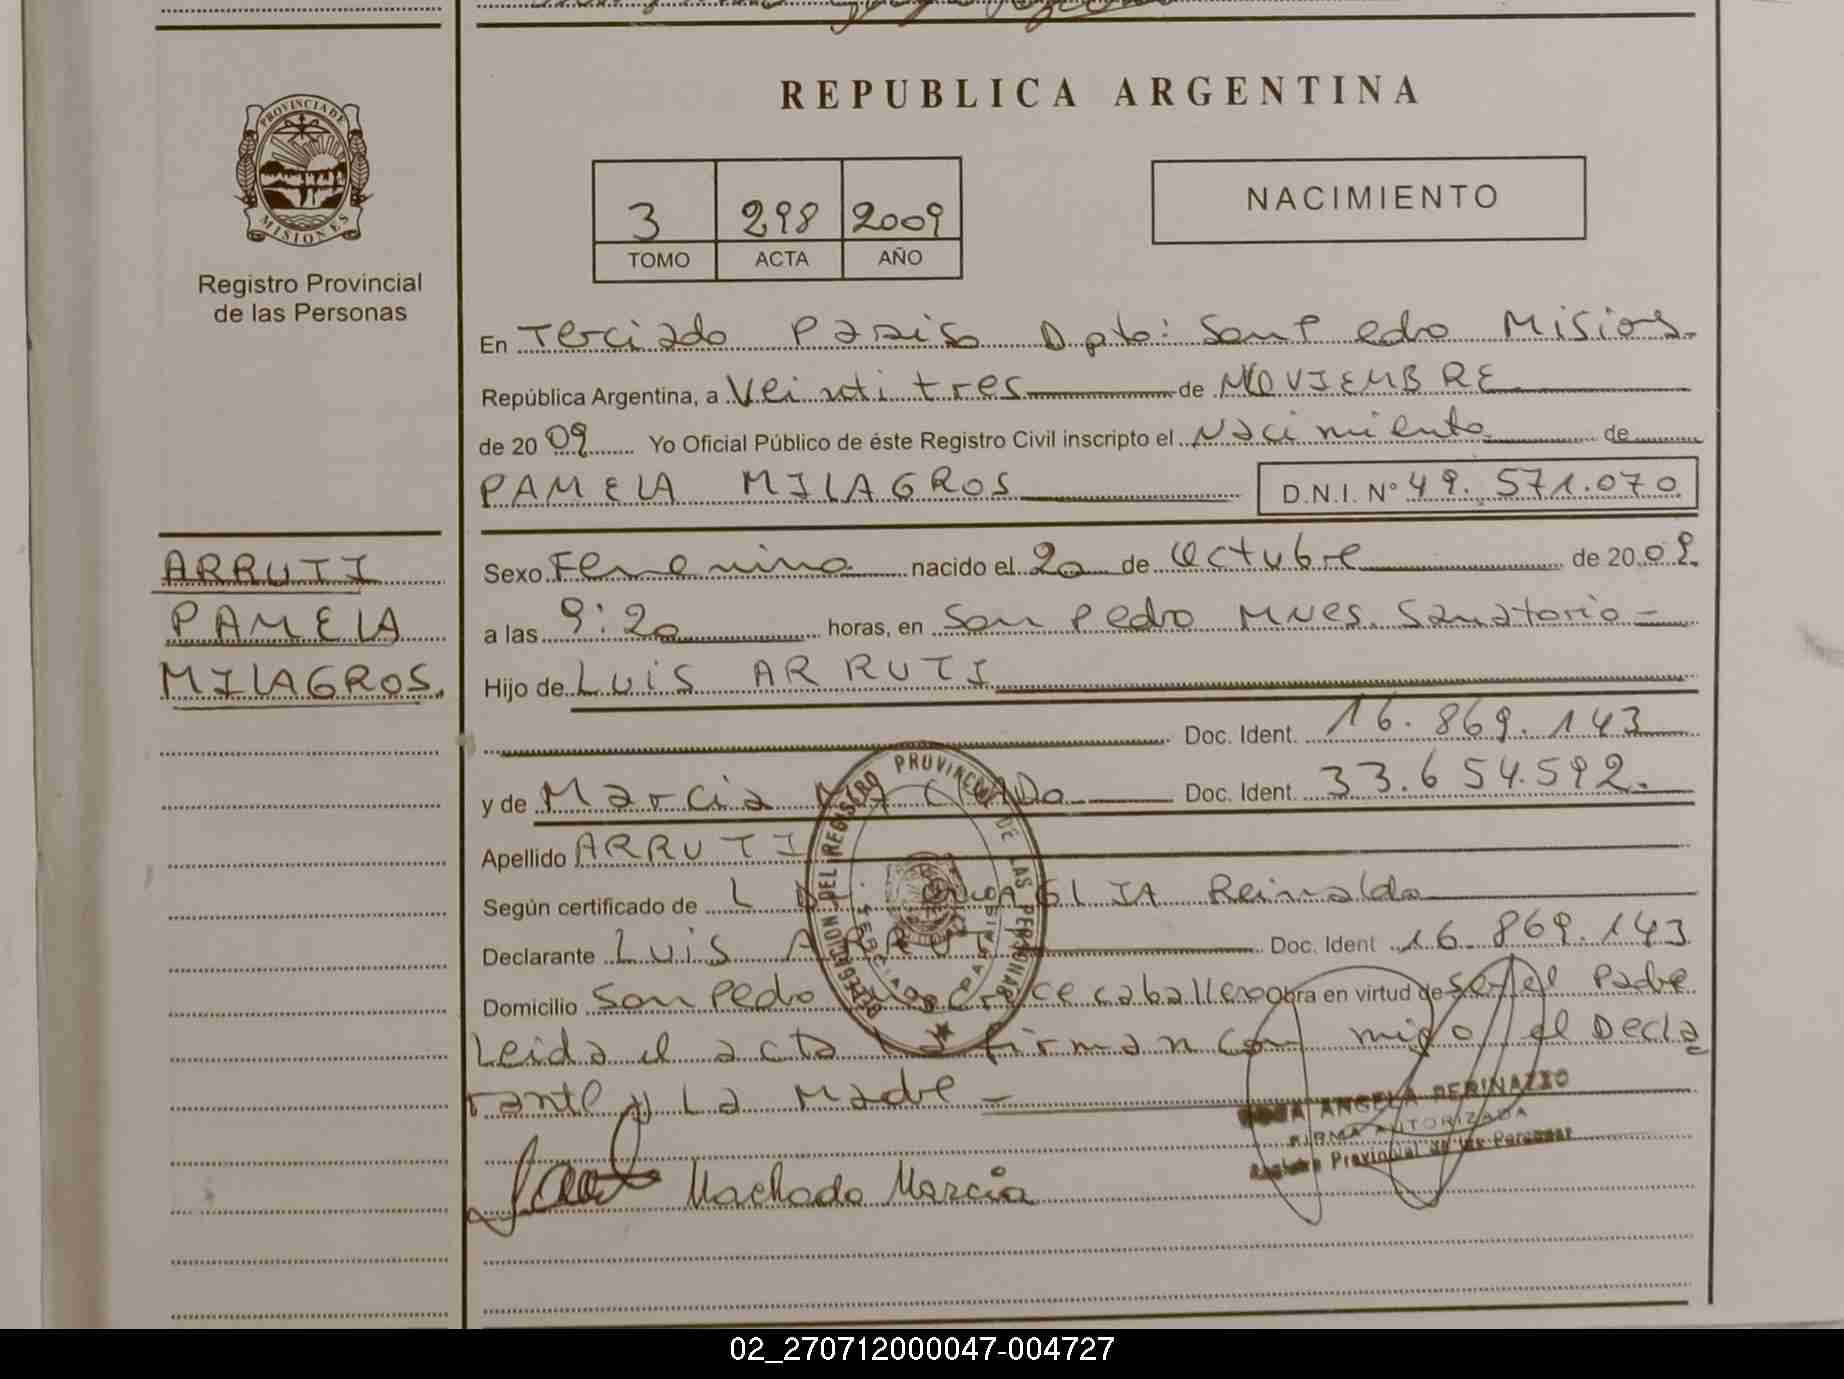 REPUBLICA ARGENTINA
PROVINCIA DE
MISIONES
Registro Provincial
de las Personas
3 298 2009
TOMO ACTA AÑO
NACIMIENTO
En Terciado Paraiso Dpto: San Pedro Misiones.
República Argentina, a Veintitres de NOVIEMBRE
de 2009 Yo Oficial Público de éste Registro Civil inscripto el Nacimiento de
PAMELA MILAGROS D.N.I. Nº 49.571.070
ARRUTI
PAMELA
MILAGROS.
Sexo Femenino nacido el 20 de Octubre de 2009
a las 9:20 horas, en San Pedro Mnes. Sanatorio
Hijo de Luis ARRUTI
Doc. Ident. 16.869.143
y de Marcia Doc. Ident. 33.654.592.
Apellido ARRUTI
Según certificado de Reinaldo
Declarante Luis ARRUTI Doc. Ident 16.869.143
Domicilio San Pedro caballero Obra en virtud de ser el Padre
Leida el acta la firman con migo el Decla
rante y La Madre
DELEGACION DEL REGISTRO PROVINCIAL DE LAS PERSONAS
TERCIADO PARAISO
ANGELA PERINAZZO
FIRMA AUTORIZADA
Registro Provincial de las Personas
Machado Marcia
02_270712000047-004727